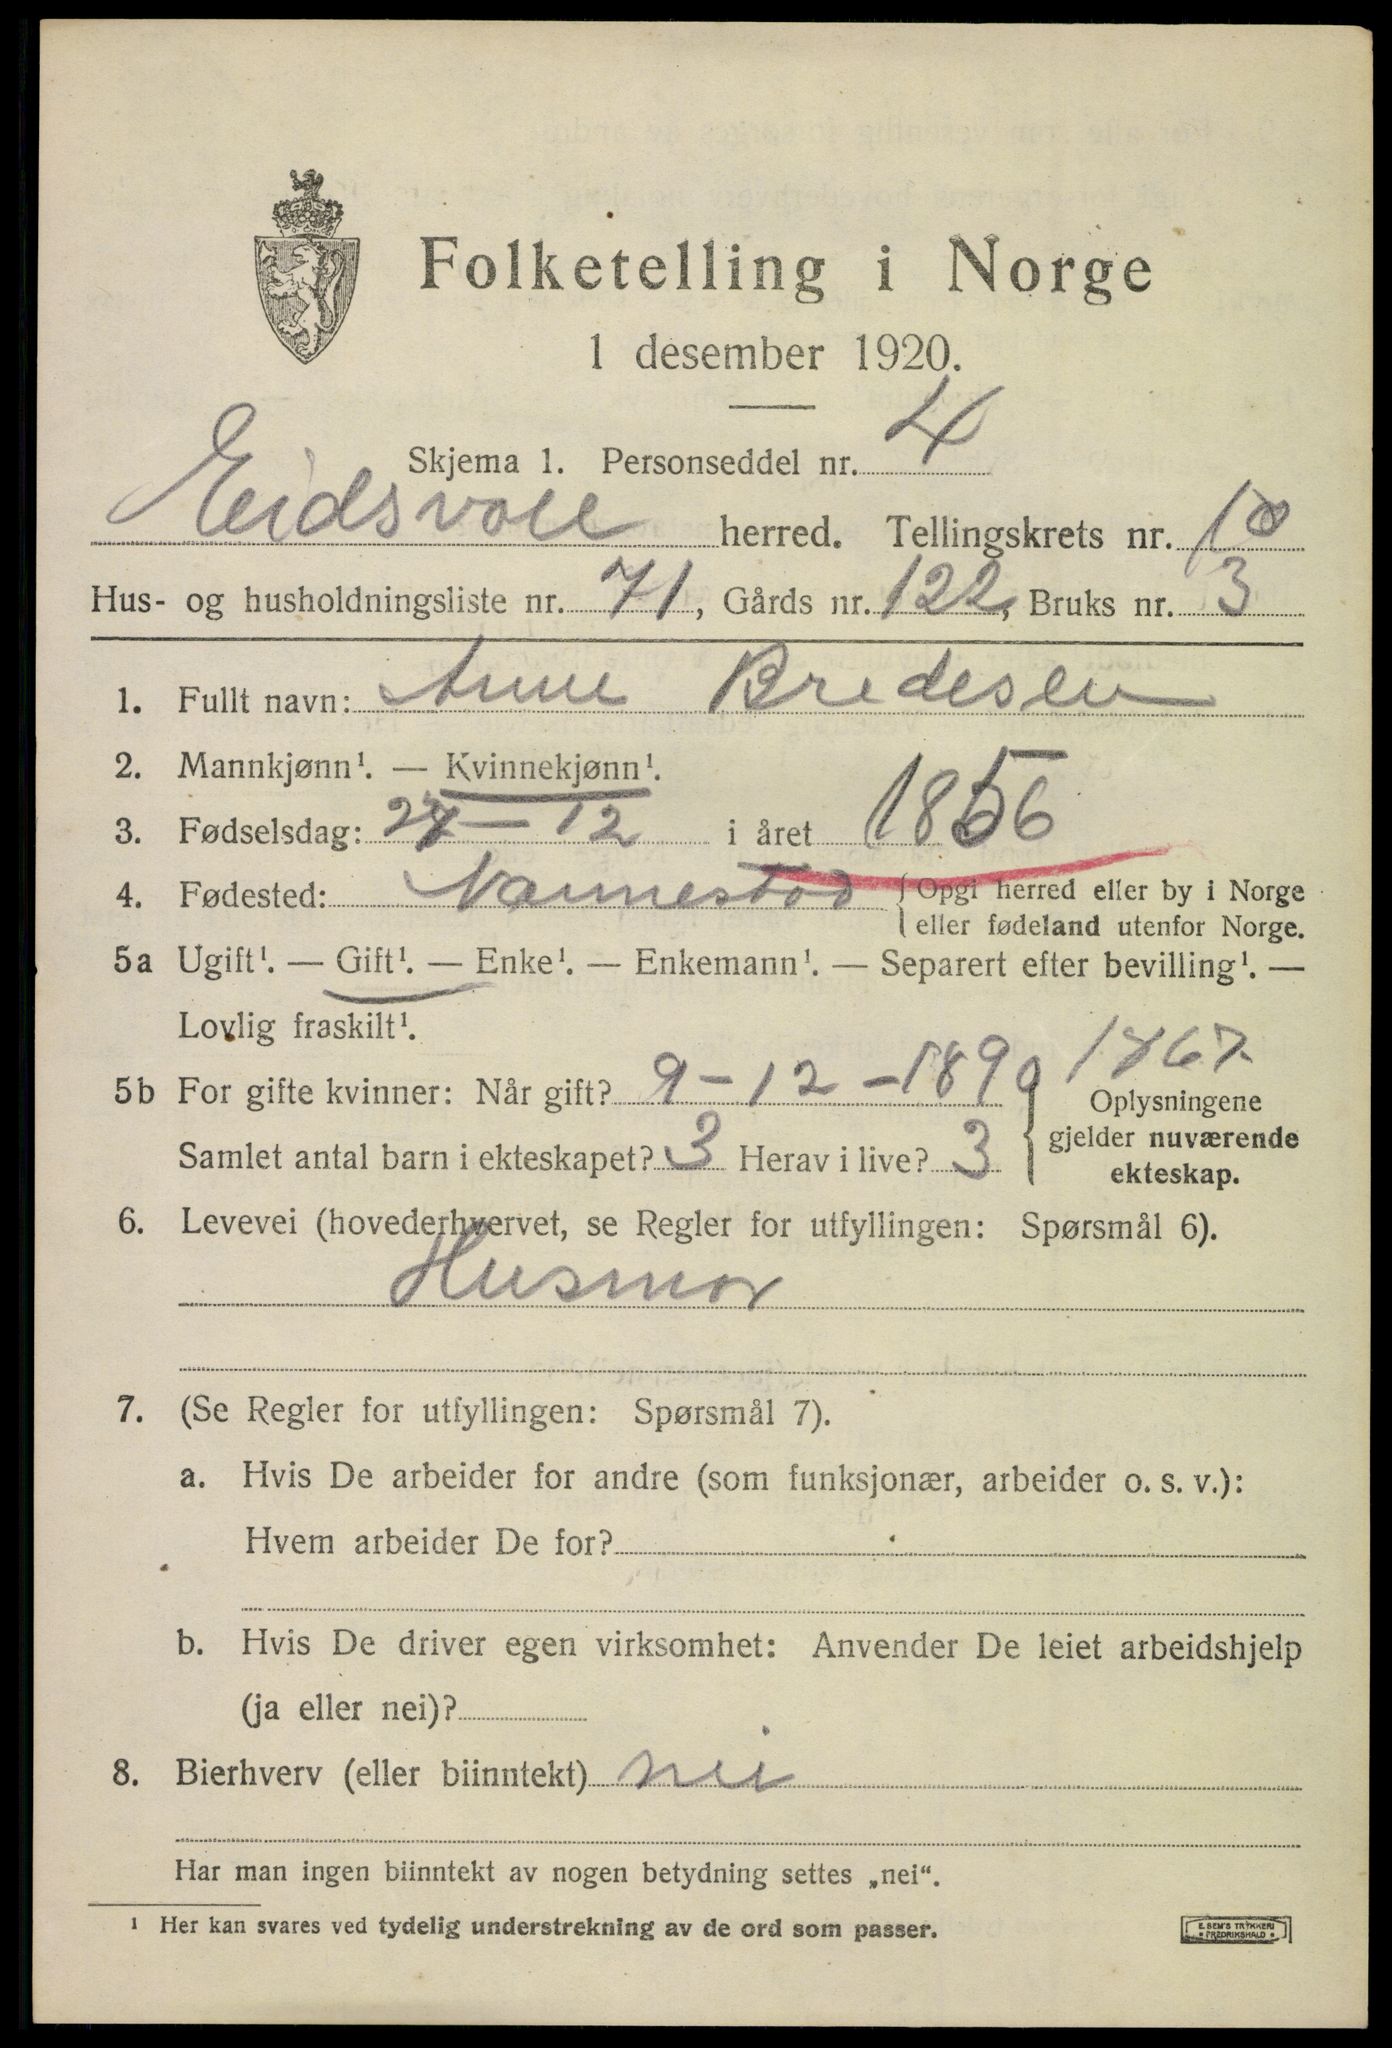 Folketelling i Norge
1 desember 1920.
Skjema 1. Personseddel nr. 4
Eidsvoll herred. Tellingskrets nr. 10
Hus- og husholdningsliste nr. 71, Gårds nr. 122, Bruks nr. 3
1. Fullt navn: Anne Bredesen
2. Mannkjønn¹. — Kvinnekjønn¹.
3. Fødselsdag: 27 — 12 i året 1856
4. Fødested: Nannestad { Opgi herred eller by i Norge
eller fødeland utenfor Norge.
5a Ugift¹. — Gift¹. — Enke¹. — Enkemann¹. — Separert efter bevilling¹. —
Lovlig fraskilt¹.
1867
5b For gifte kvinner: Når gift? 9 – 12 – 1890 { Oplysningene
gjelder nuværende
ekteskap.
Samlet antal barn i ekteskapet? 3 Herav i live? 3
6. Levevei (hovederhvervet, se Regler for utfyllingen: Spørsmål 6).
Husmor
7. (Se Regler for utfyllingen: Spørsmål 7).
a. Hvis De arbeider for andre (som funksjonær, arbeider o. s. v.):
Hvem arbeider De for?
b. Hvis De driver egen virksomhet: Anvender De leiet arbeidshjelp
(ja eller nei)?
8. Bierhverv (eller biinntekt) nei
Har man ingen biinntekt av nogen betydning settes „nei“.
¹ Her kan svares ved tydelig understrekning av de ord som passer.
E. SEM'S TRYKKERI
FREDRIKSHALD